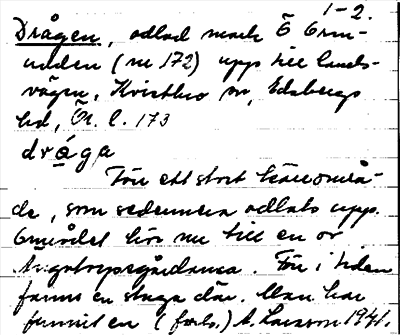 1-2.
Drågen, odlad mark Ö Grun-
udden (nr 172) upp till lands-
vägen, Kvistbro sn, Edsbergs
hd, Ör. l. 173
dråga
Förr ett stort kärrområ-
de, som sedermera odlats upp.
Området hör nu till en av
gårdarna. Förr i tiden
fanns en stuga där. Man har
funnit en (forts.) A. Larsson 1941.